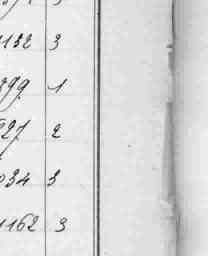 1132 3
399 1
527 2
034 3
1162 3